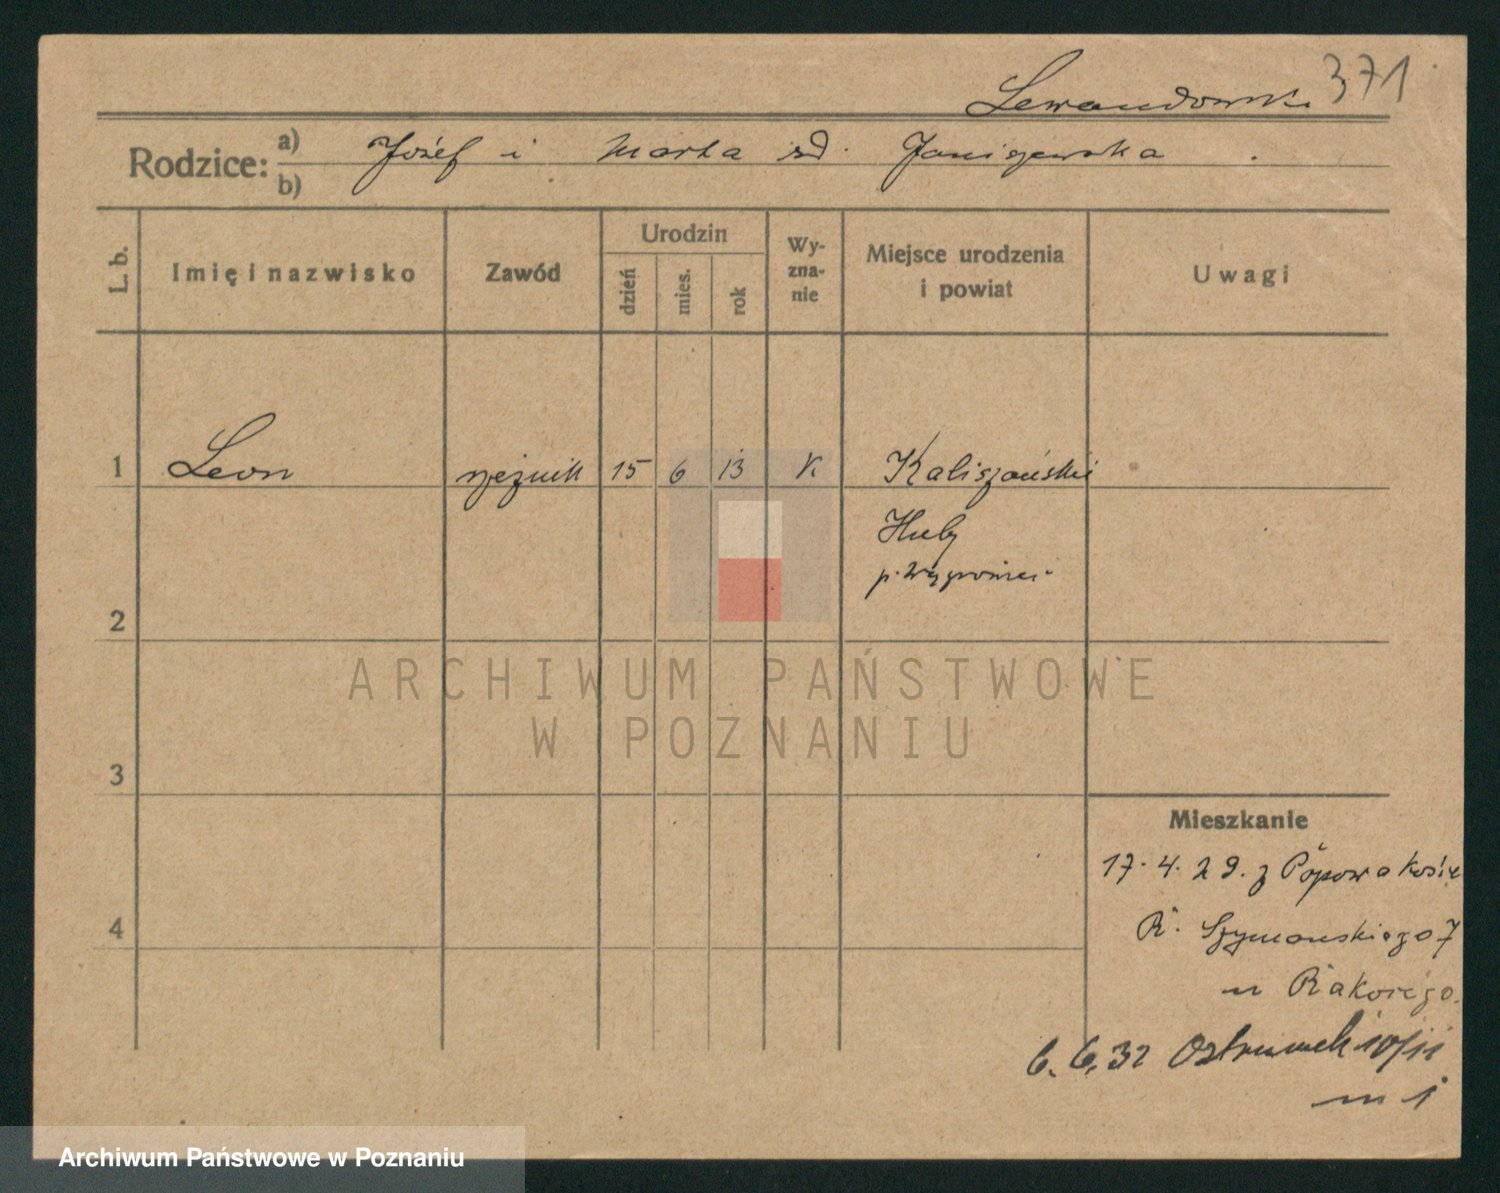 Lewandowski 371
Rodzice: a) Józef i Marta zd. Janiszewska
b)
L. b. Imię i nazwisko Zawód Urodzin dzień mies. rok Wy-zna-nie Miejsce urodzenia i powiat Uwagi
1 Leon rzeźnik 15 6 13 k. Kaliszańskie
Huby
p.
2
ARCHIWUM PAŃSTWOWE
W POZNANIU
3
Mieszkanie
17.4.29. z Popowa kośc
4 R. Szymańskiego 7
u
6.6.32 10/11
u i
Archiwum Państwowe w Poznaniu